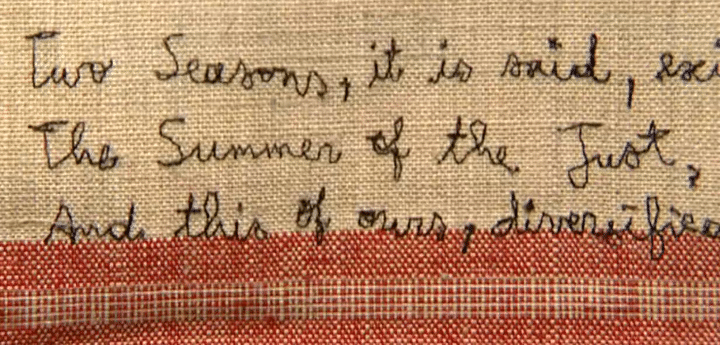 Two Seasons, it is said, exi
The Summer of the Just,
And this of ours, diversifie